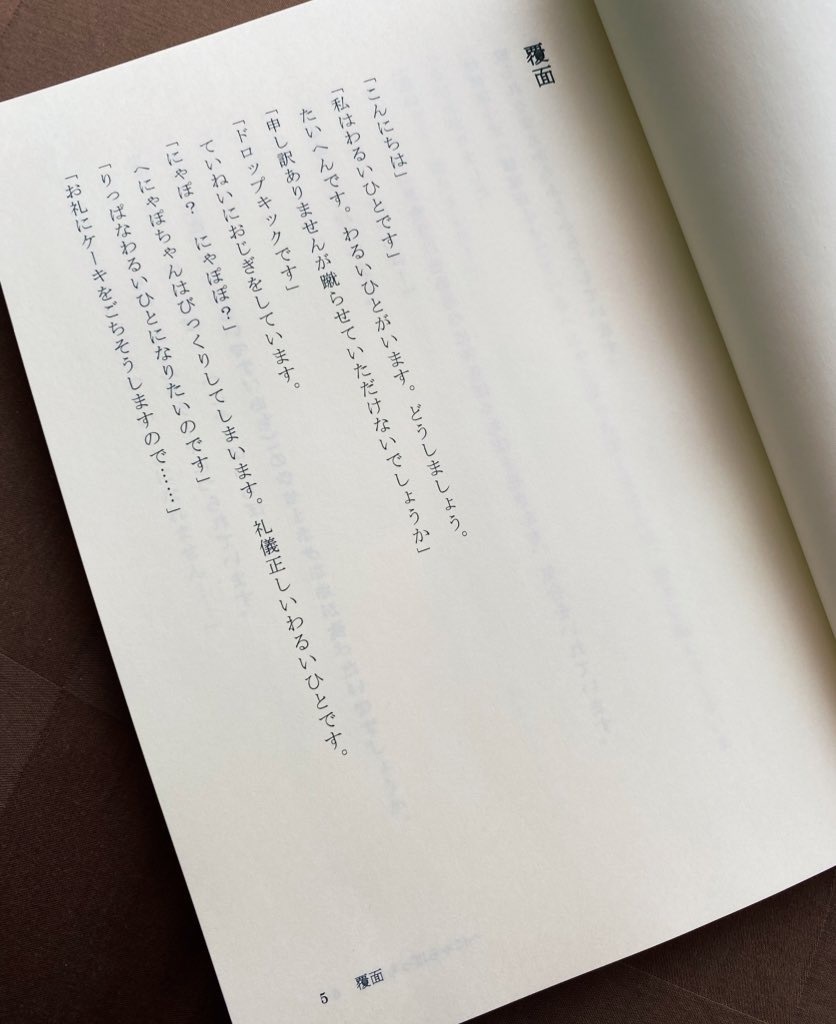 覆面
「こんにちは」
「私はわるいひとです」
たいへんです。わるいひとがいます。どうしましょう。
「申し訳ありませんが蹴らせていただけないでしょうか」
「ドロップキックです」
ていねいにおじぎをしています。
「にゃぽ？　にゃぽぽ？」
へにゃぽちゃんはびっくりしてしまいます。礼儀正しいわるいひとです。
「りっぱなわるいひとになりたいのです」
「お礼にケーキをごちそうしますので……」
覆面
5